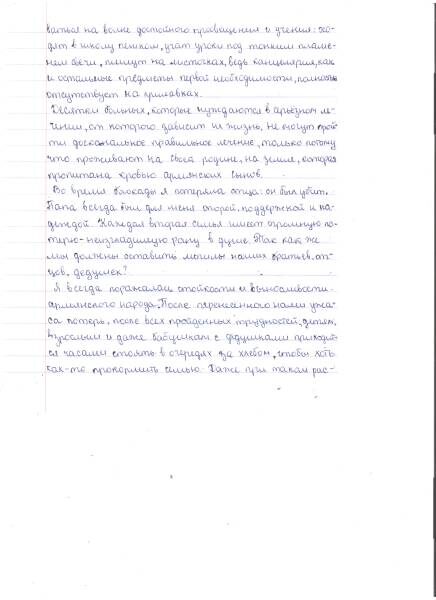 ваться на волне достойного просвещения и учения: хо-
дят в школу пешком, учат уроки под тонким пламе-
нем свечи, пишут на листочках, ведь канцелярия, как
и остальные предметы первой необходимости, полностью
отсутствует на прилавках.
Десятки больных, которые нуждаются в срочном ле-
чении, от которого зависит их жизнь, не могут прой-
ти доскональное правильное лечение, только потому
что проживают на своей родине, на земле, которая
пропитана кровью армянских сынов.
Во время блокады я потеряла отца: он был убит.
Папа всегда был для меня опорой, поддержкой и на-
деждой. Каждая вторая семья имеет огромную по-
терю-неизгладимую рану в душе. Так как же
мы должны оставить могилы наших братьев, от-
цов, дедушек?
Я всегда поражалась стойкости и выносливости
армянского народа. После перенесённого нами ужа-
са потерь, после всех пройденных трудностей, детям,
взрослым и даже бабушкам с дедушками приходит-
ся часами стоять в очередях за хлебом, чтобы хоть
как-то прокормить семью. Даже при таком рас-